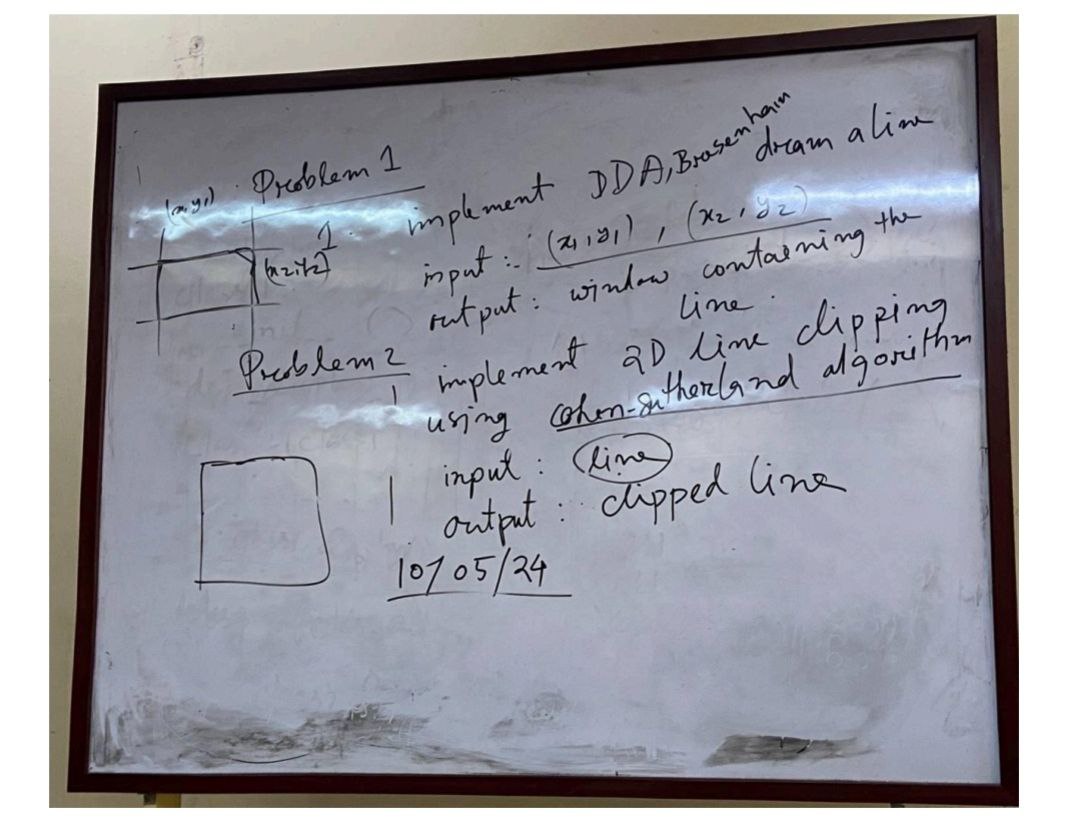 Problem 1
(x1, y1)
(x2, y2)
1. implement DDA, Brosenhain draw a line
input :- (x1, y1), (x2, y2)
output : window containing the
line.
Problem 2
implement 2D line clipping
using cohen-Sutherland algorithm
input : line
output : clipped line
10/05/24